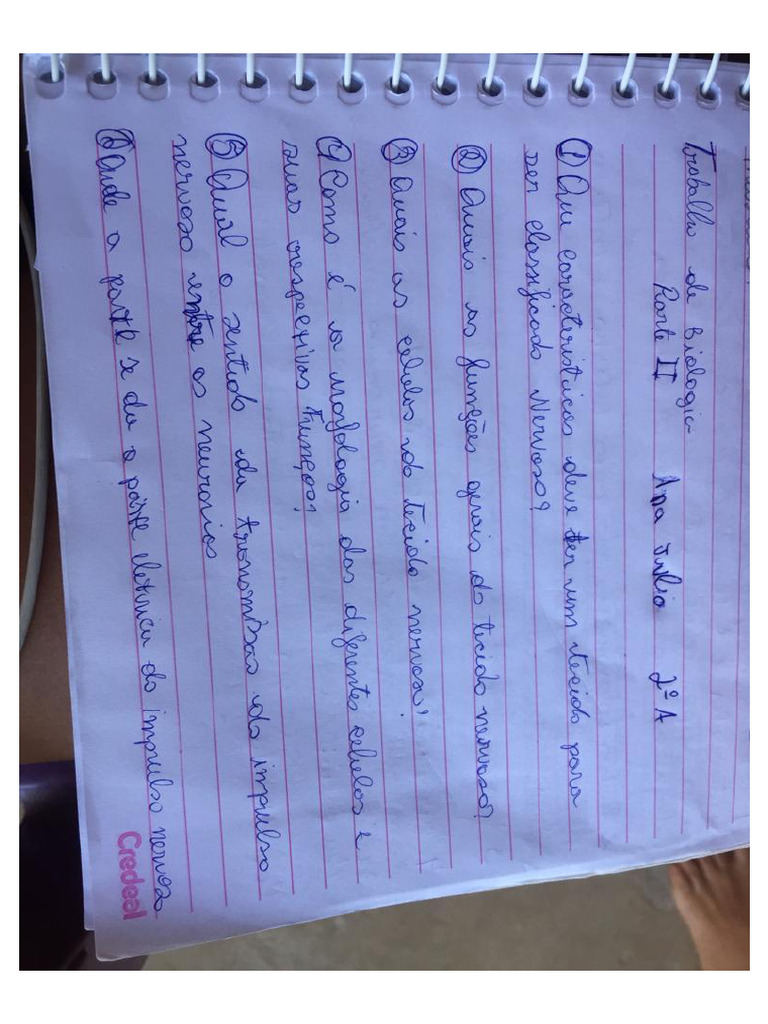 Trabalho de Biologia
Parte II Ana Julia 2º A
① Que caracteristicas deve ter um tecido para
ser classificado Nervoso?
② Quais as funções gerais do tecido nervoso?
③ Quais as celulas do tecido nervoso?
④ Como é a morfologia das diferentes celulas e
suas respectivas Funçoes?
⑤ Qual o sentido da transmissão do impulso
nervoso entre os neuronios
⑥ Onde a parte se da a parte eletrica do impulso nervoso
Credeal